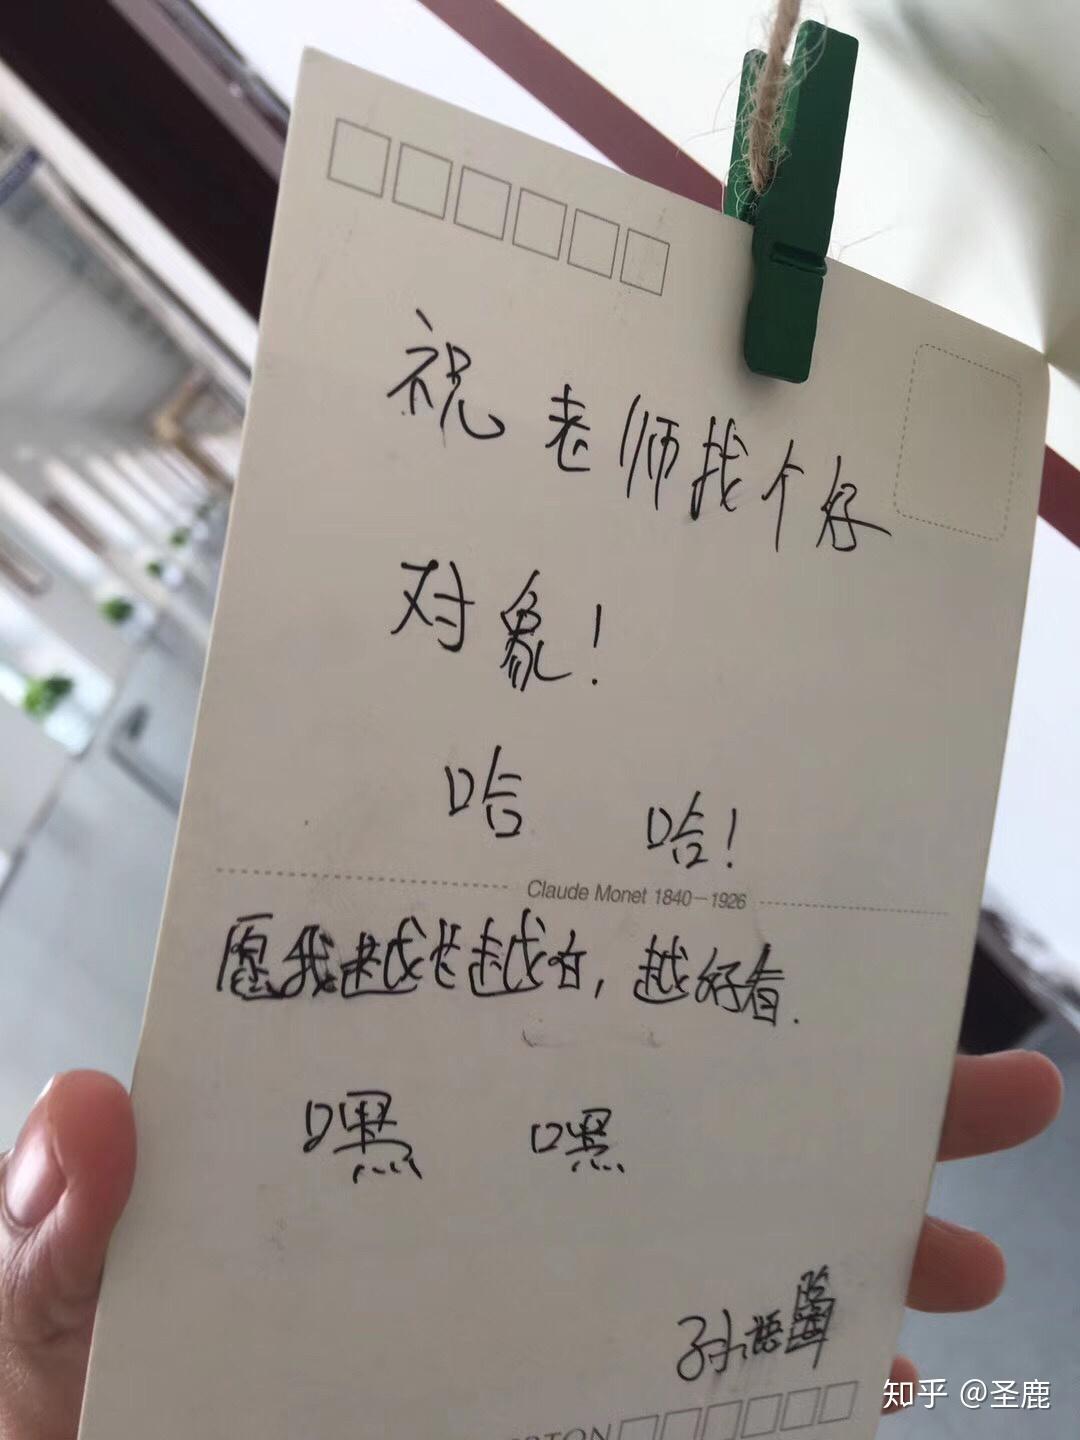 祝老师找个好
对象!
哈 哈!
Claude Monet 1840—1926
愿我越长越白,越好看.
嘿 嘿
孙语
知乎 @圣鹿